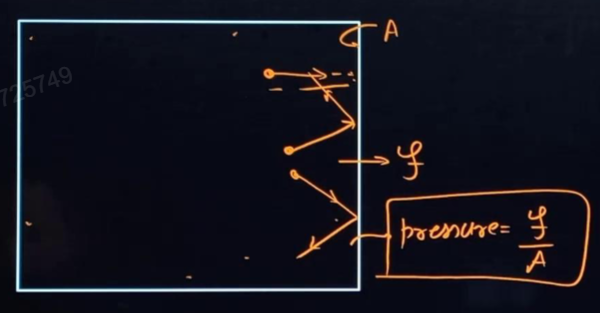 A
725749
f
pressure = f/A